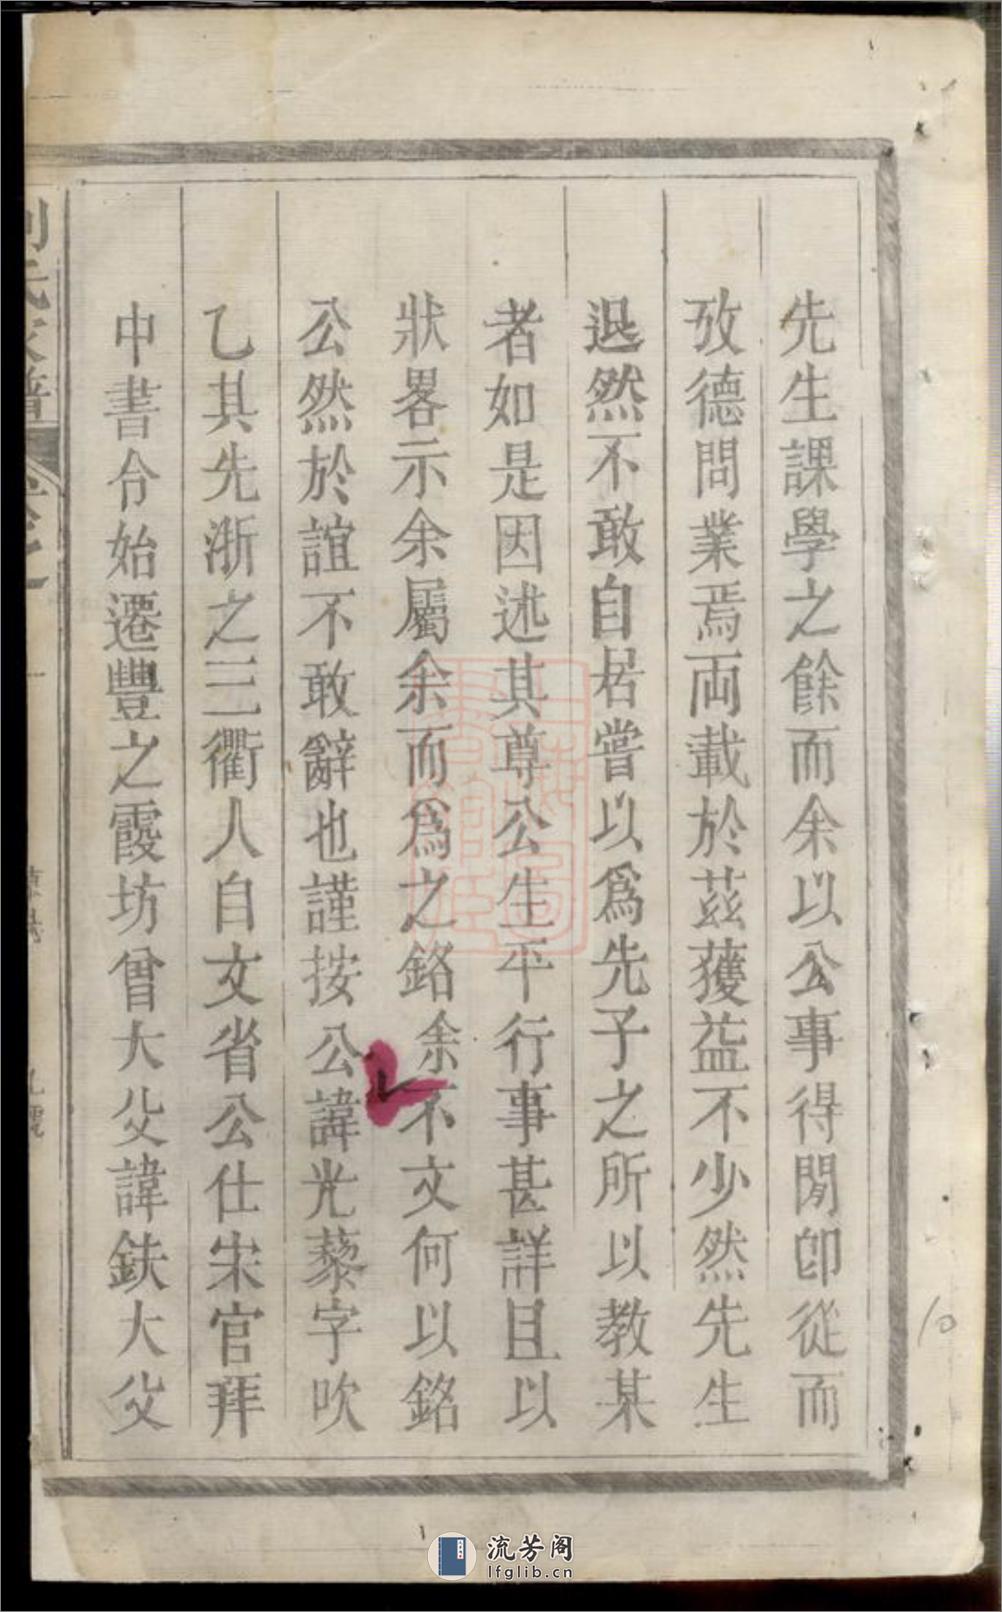 先生課學之餘而余以公事得閒卽從而
攷德問業焉両載於茲獲益不少然先生
退然不敢自居嘗以爲先子之所以教某
者如是因述其尊公生平行事甚詳且以
狀畧示余屬余而爲之銘余不文何以銘
公然於誼不敢辭也謹按公諱光藜字吹
乙其先浙之三衢人自文省公仕宋官拜
中書令始遷豐之霞坊曾大父諱鈇大父
氏家譜
卷之一
10
流芳阁
lfglib.cn